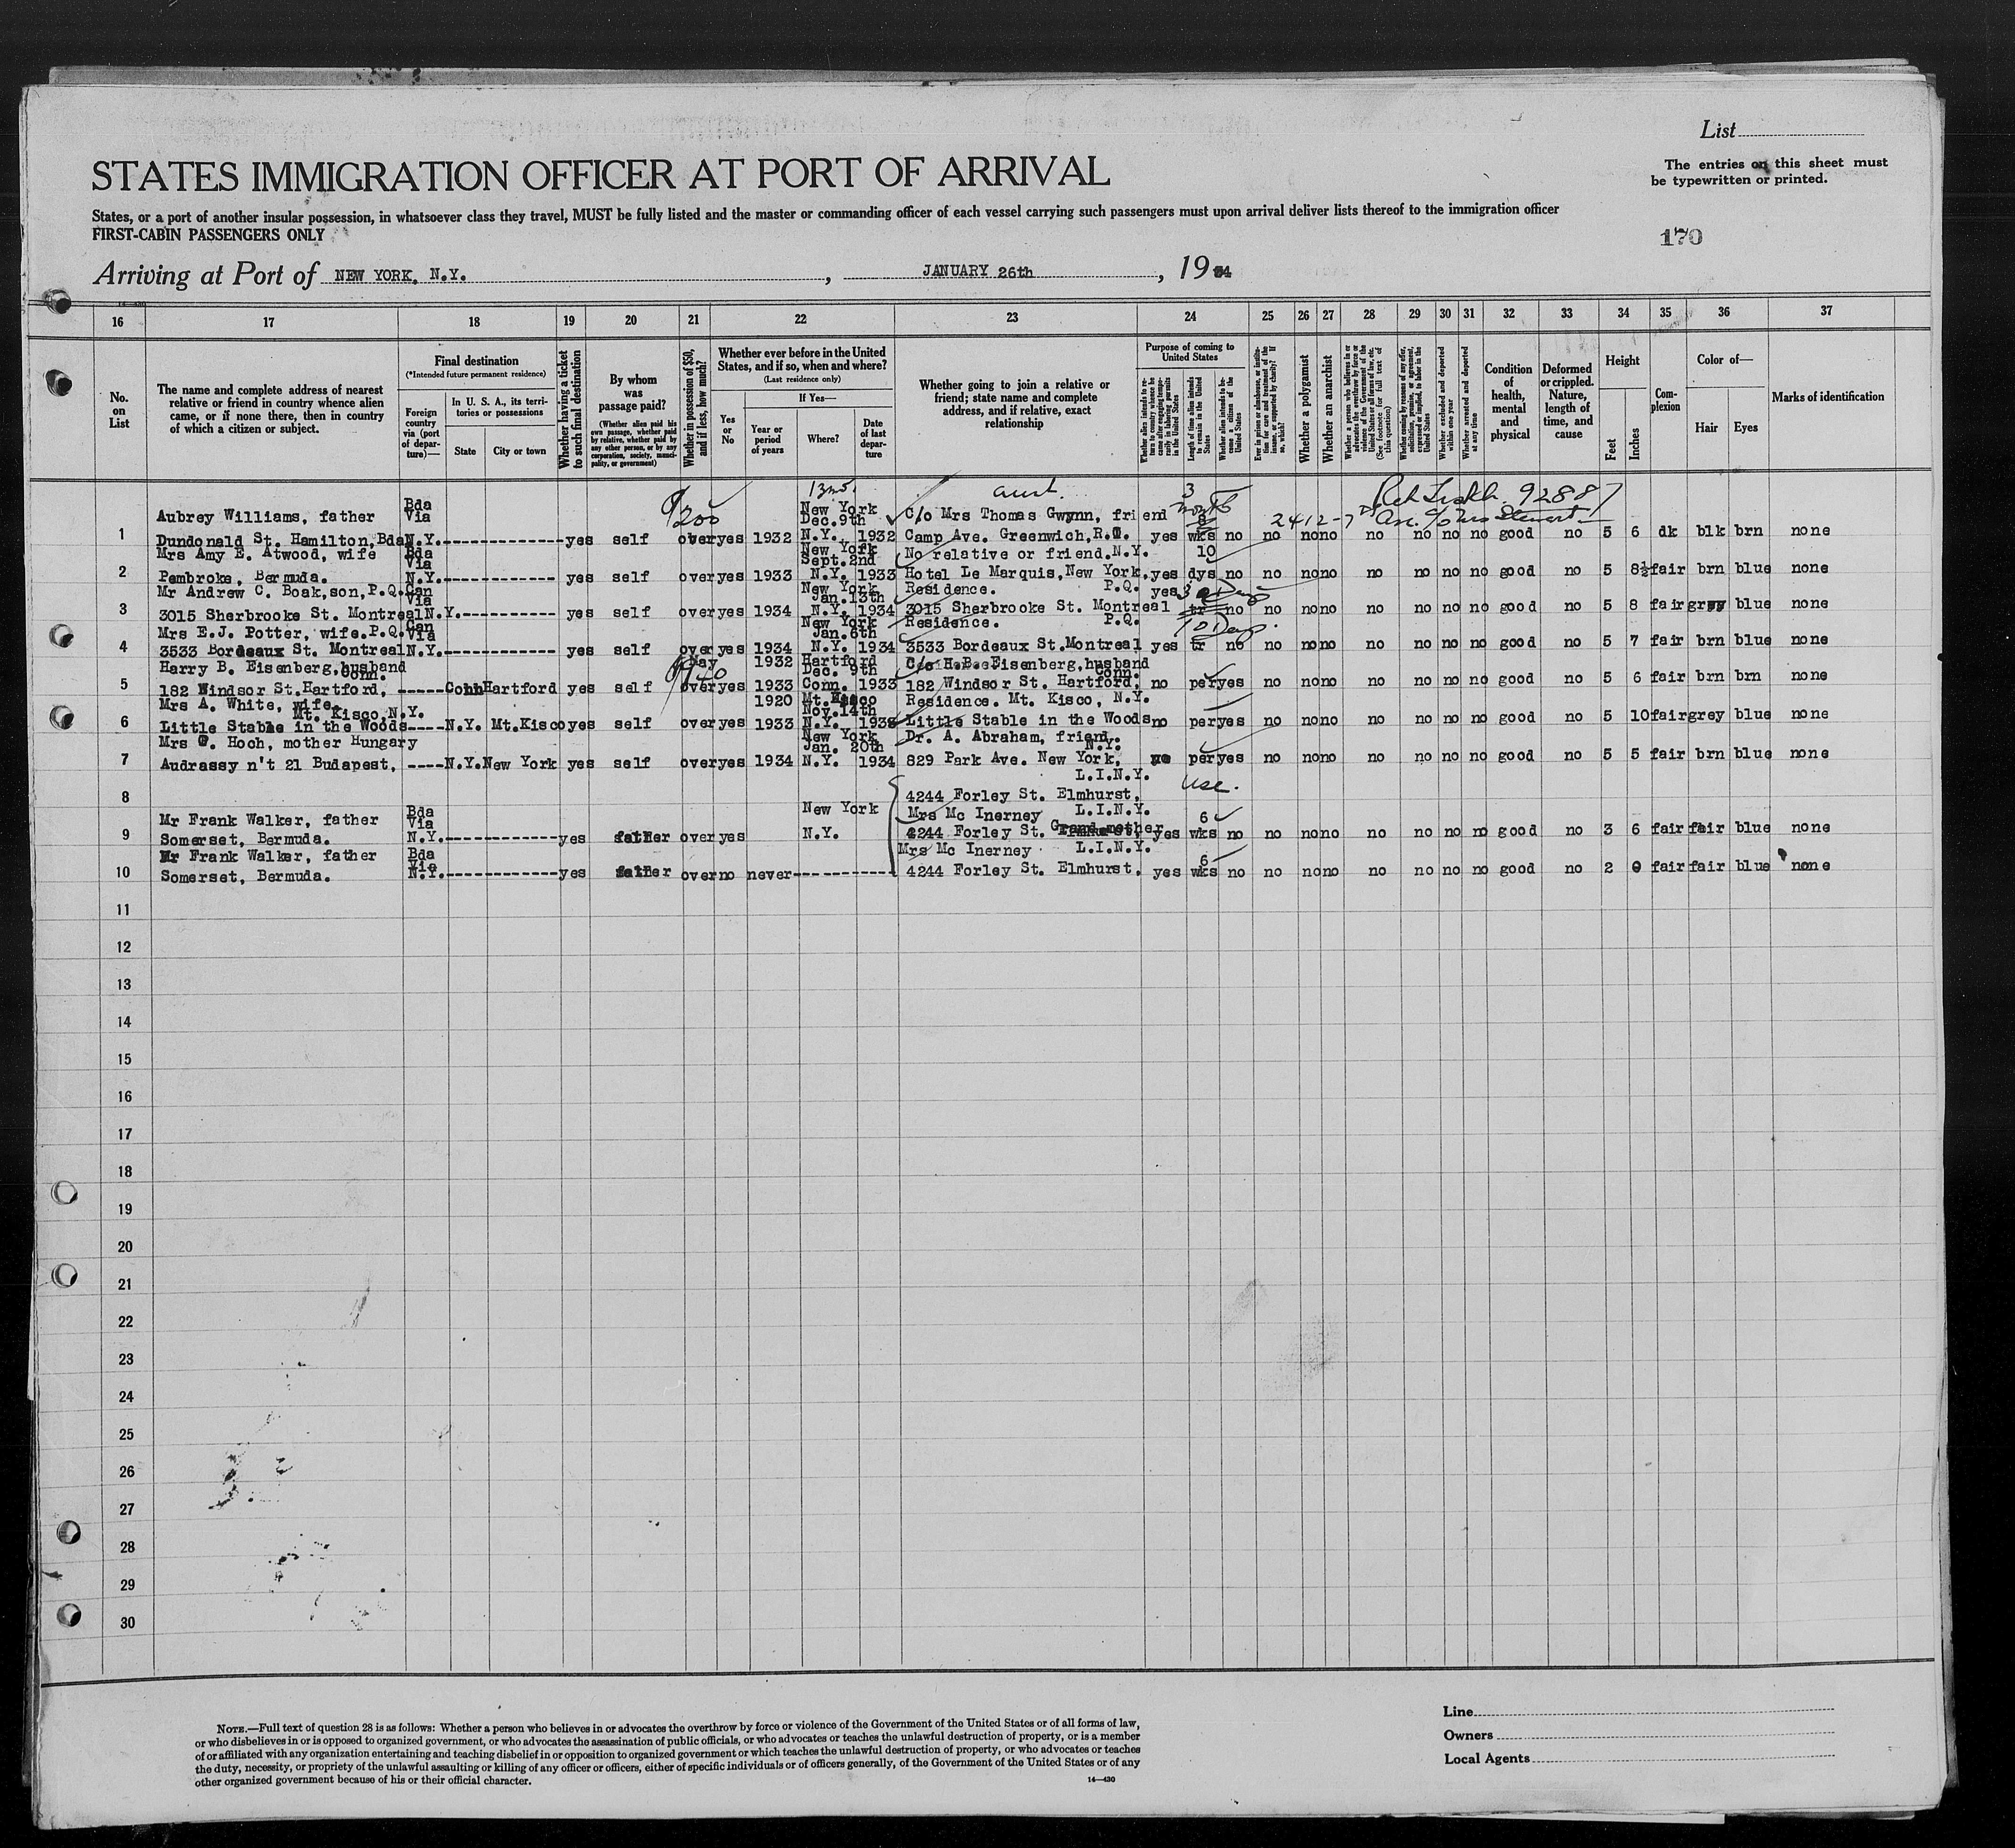 List
The entries on this sheet must
be typewritten or printed.
STATES IMMIGRATION OFFICER AT PORT OF ARRIVAL
States, or a port of another insular possession, in whatsoever class they travel, MUST be fully listed and the master or commanding officer of each vessel carrying such passengers must upon arrival deliver lists thereof to the immigration officer
FIRST-CABIN PASSENGERS ONLY
170
Arriving at Port of NEW YORK, N.Y. , JANUARY 26th , 1934
16 17 18 19 20 21 22 23 24 25 26 27 28 29 30 31 32 33 34 35 36 37
No. on List
The name and complete address of nearest relative or friend in country whence alien came, or if none there, then in country of which a citizen or subject.
Final destination
(*Intended future permanent residence)
Foreign country via (port of departure)—
In U. S. A., its territories or possessions
State
City or town
Whether having a ticket to such final destination
By whom was passage paid?
(Whether alien paid his own passage, whether paid by relative, whether paid by any other person, or by any corporation, society, municipality, or government)
Whether in possession of $50, and if less, how much?
Whether ever before in the United States, and if so, when and where?
(Last residence only)
Yes or No
If Yes—
Year or period of years
Where?
Date of last departure
Whether going to join a relative or friend; state name and complete address, and if relative, exact relationship
Purpose of coming to United States
Length of time alien intends to remain in the United States
Whether alien intends to become a citizen of the United States
Whether a polygamist
Whether an anarchist
Whether excluded and deported within one year
Whether arrested and deported at any time
Condition of health, mental and physical
Deformed or crippled. Nature, length of time, and cause
Height
Feet
Inches
Complexion
Color of—
Hair
Eyes
Marks of identification
aunt. 3
Aubrey Williams, father Bda Via $200 New York Dec. 9th C/o Mrs Thomas Gwynn, friend 92887
1 Dundonald St. Hamilton, Bda N.Y. yes self over yes 1932 N.Y. 1932 Camp Ave. Greenwich, yes wks no no no no no no no no good no 5 6 dk blk brn none
Mrs Amy E. Atwood, wife Bda Via New York Sept. 2nd No relative or friend. N.Y. 10
2 Pembroke, Bermuda. N.Y. yes self over yes 1933 N.Y. 1933 Hotel Le Marquis, New York. yes dys no no no no no no no no good no 5 8½ fair brn blue none
Mr Andrew C. Boak, son, P.Q. Can Via New York Jan. 13th Residence. P.Q. yes
3 3015 Sherbrooke St. Montreal N.Y. yes self over yes 1934 N.Y. 1934 3015 Sherbrooke St. Montreal tr no no no no no no no no good no 5 8 fair grey blue none
Mrs E.J. Potter, wife. P.Q. Can Via New York Jan. 6th Residence. P.Q. 10 Days.
4 3533 Bordeaux St. Montreal N.Y. yes self over yes 1934 N.Y. 1934 3533 Bordeaux St. Montreal yes tr no no no no no no no no good no 5 7 fair brn blue none
Harry B. Eisenberg, husband Conn. $40 1932 Hartford Dec. 9th C/o H.B. Eisenberg, husband Conn.
5 182 Windsor St. Hartford, Conn Hartford yes self over yes 1933 Conn. 1933 182 Windsor St. Hartford, no per yes no no no no no no no good no 5 6 fair brn brn none
Mrs A. White, wife. Mt. Kisco N.Y. 1920 Mt. Kisco Nov. 14th Residence. Mt. Kisco, N.Y.
6 Little Stable in the Woods N.Y. Mt. Kisco yes self over yes 1933 N.Y. 1933 Little Stable in the Woods no per yes no no no no no no no good no 5 10 fair grey blue none
Mrs Hoch, mother Hungary New York Jan. 20th Dr. A. Abraham, friend. N.Y.
7 Audrassy n't 21 Budapest, N.Y. New York yes self over yes 1934 N.Y. 1934 829 Park Ave. New York, per yes no no no no no no no good no 5 5 fair brn blue none
L.I.N.Y.
8 4244 Forley St. Elmhurst, USC.
Mr Frank Walker, father Bda Via New York Mrs Mc Inerney L.I.N.Y. 6
9 Somerset, Bermuda. N.Y. yes father over yes N.Y. 4244 Forley St. Grand mother yes wks no no no no no no no no good no 3 6 fair fair blue none
Mr Frank Walker, father Bda Via Mrs Mc Inerney L.I.N.Y. 6
10 Somerset, Bermuda. N.Y. yes father over no never 4244 Forley St. Elmhurst, yes wks no no no no no no no no good no 2 0 fair fair blue none
11
12
13
14
15
16
17
18
19
20
21
22
23
24
25
26
27
28
29
30
NOTE.—Full text of question 28 is as follows: Whether a person who believes in or advocates the overthrow by force or violence of the Government of the United States or of all forms of law,
or who disbelieves in or is opposed to organized government, or who advocates the assassination of public officials, or who advocates or teaches the unlawful destruction of property, or is a member
of or affiliated with any organization entertaining and teaching disbelief in or opposition to organized government or which teaches the unlawful destruction of property, or who advocates or teaches
the duty, necessity, or propriety of the unlawful assaulting or killing of any officer or officers, either of specific individuals or of officers generally, of the Government of the United States or of any
other organized government because of his or their official character.
14—430
Line
Owners
Local Agents